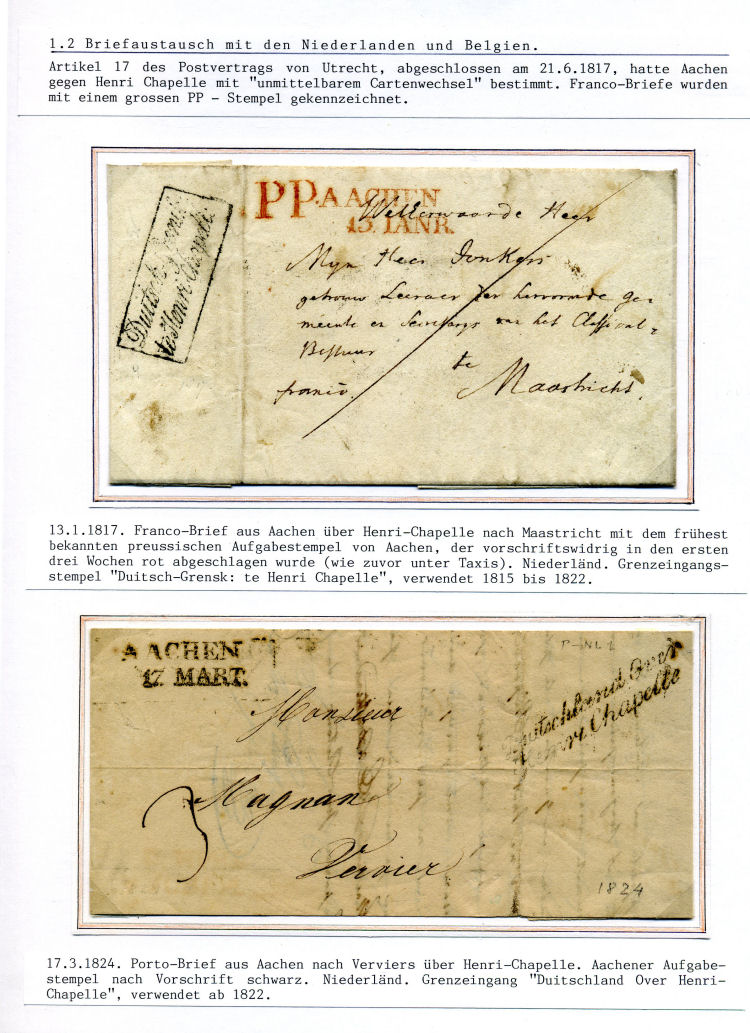 1.2 Briefaustausch mit den Niederlanden und Belgien.
Artikel 17 des Postvertrags von Utrecht, abgeschlossen am 21.6.1817, hatte Aachen
gegen Henri Chapelle mit "unmittelbarem Cartenwechsel" bestimmt. Franco-Briefe wurden
mit einem grossen PP - Stempel gekennzeichnet.
PP. AACHEN
13. IANR.
Duitsch Grens:
te Henri Chapelle.
Wellerwaarde Heer
Mijn Heer Jonkers
getrouw Leeraar der hervormde Ge-
meente en Secretaris van het Classicale
Bestuur
te
franco. Maastricht.
13.1.1817. Franco-Brief aus Aachen über Henri-Chapelle nach Maastricht mit dem frühest
bekannten preussischen Aufgabestempel von Aachen, der vorschriftswidrig in den ersten
drei Wochen rot abgeschlagen wurde (wie zuvor unter Taxis). Niederländ. Grenzeingangs-
stempel "Duitsch-Grensk: te Henri Chapelle", verwendet 1815 bis 1822.
AACHEN
17. MART.
P-NL 2
Duitschland Over
Henri Chapelle
Monsieur
Magnan
3
Vervier
1824
17.3.1824. Porto-Brief aus Aachen nach Verviers über Henri-Chapelle. Aachener Aufgabe-
stempel nach Vorschrift schwarz. Niederländ. Grenzeingang "Duitschland Over Henri-
Chapelle", verwendet ab 1822.